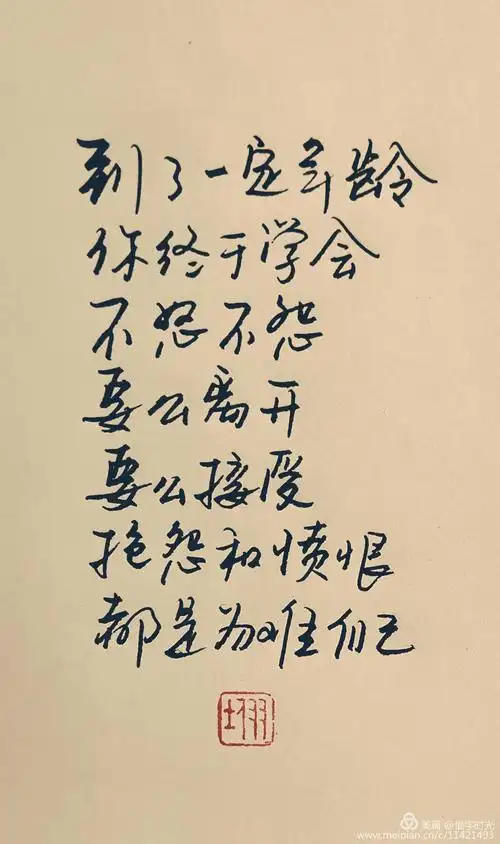 到了一定年龄
你终于学会
不怒不怨
要么离开
要么接受
抱怨和愤恨
都是为难自己
美篇 @借字时光
www.meipian.cn/c/11421493